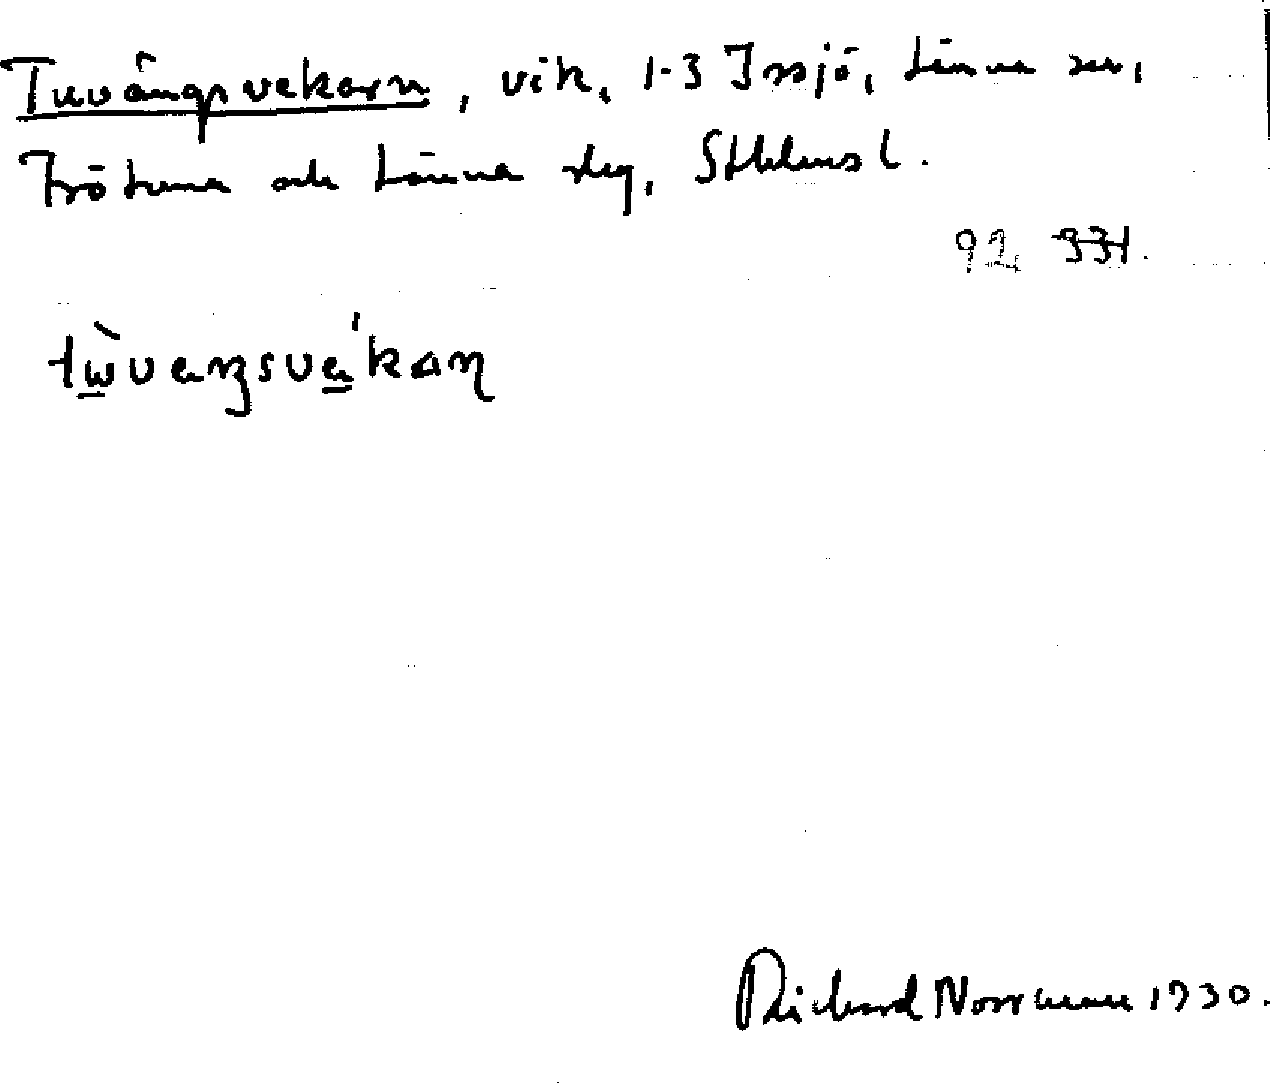 Tuvångsvekarn, vik, 1-3 Issjö, Länna sn,
Frötuna och Länna slg, Sthlms l.
92 931.
tu̱̇̀vaŋsve̱'kaɳ
Richard Norrman 1930.